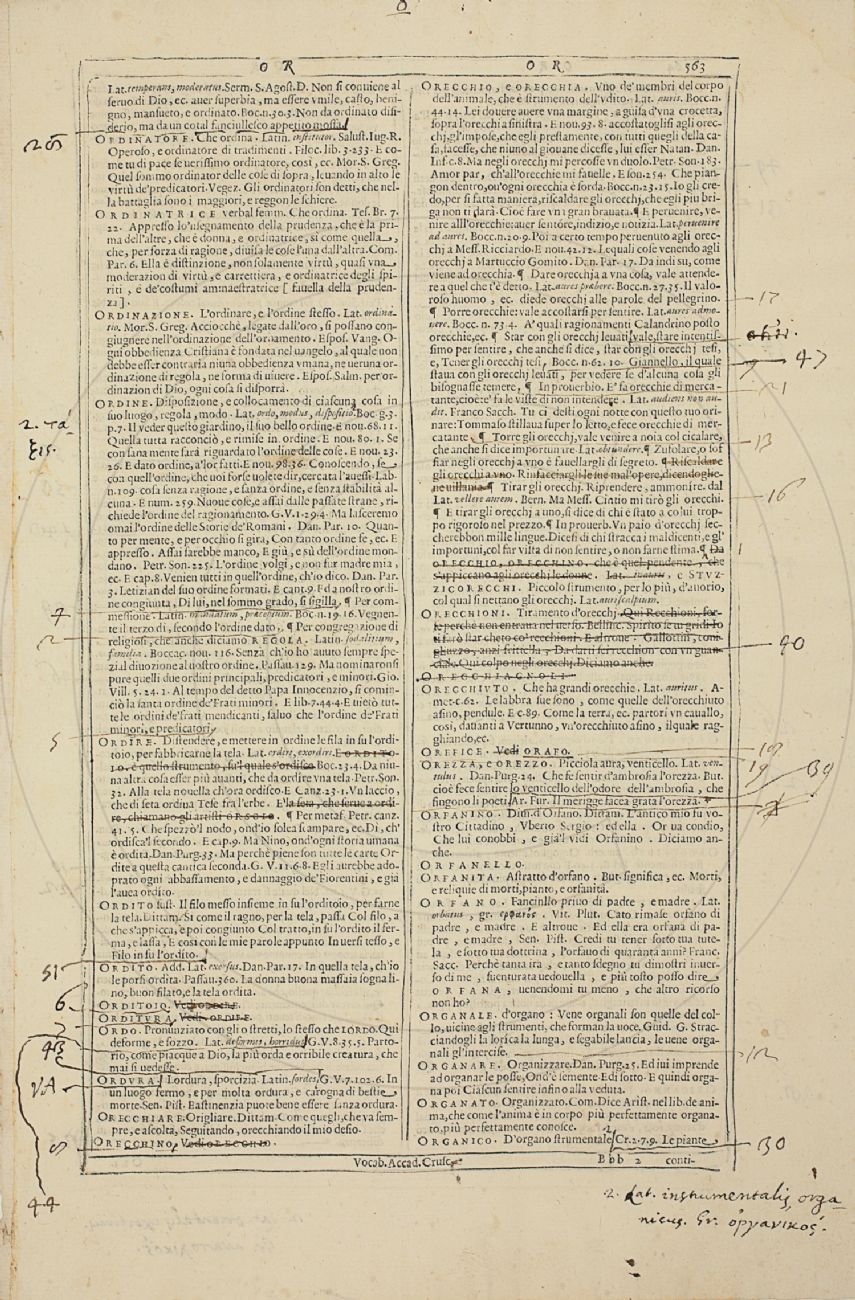 O R
O R 563
Lat. temperans, moderatus. Serm. S. Agost. D. Non si conuiene al
seruo di Dio, ec. auer superbia, ma essere vmile, casto, beni-
gno, mansueto, e ordinato. Boc. n. 30. 3. Non da ordinato disi-
derio, ma da vn cotal fanciullesco appetito mossa.
ORDINATORE. Che ordina. Latin. institutor. Salust. Iug. R.
Operoso, e ordinatore di tradimenti. Filoc. lib. 3. 233. E co-
me tu di pace se uerissimo ordinatore, così, ec. Mor. S. Greg.
Quel sommo ordinator delle cose di sopra, leuando in alto le
virtù de' predicatori. Vegez. Gli ordinatori son detti, che nel-
la battaglia sono i maggiori, e reggon le schiere.
ORDINATRICE verbal femm. Che ordina. Tes. Br. 7.
22. Appresso lo 'nsegnamento della prudenza, che è la pri-
ma dell'altre, che è donna, e ordinatrice, sì come quella,
che, per forza di ragione, diuisa le cose l'una dall'altra. Com.
Par. 6. Ella è distinzione, non solamente virtù, quasi vna
moderazion di virtù, e carrettiera, e ordinatrice degli spi-
riti, e de' costumi ammaestratrice [ fauella della pruden-
za ].
ORDINAZIONE. L'ordinare, e l'ordine stesso. Lat. ordina-
tio. Mor. S. Greg. Acciocchè, legate dall'oro, si possano con-
giugnere nell'ordinazione dell'ornamento. Espos. Vang. O-
gni obbedienza Cristiana è fondata nel uangelo, al quale non
debbe esser contraria niuna obbedienza vmana, ne ueruna or-
dinazione di regola, ne forma di uiuere. Espos. Salm. per or-
dinazion di Dio, ogni cosa si disporrà.
ORDINE. Disposizione, e collocamento di ciascuna cosa in
suo luogo, regola, modo. Lat. ordo, modus, dispositio. Boc. g. 3.
p. 7. Il veder questo giardino, il suo bello ordine. E nou. 68. 11.
Quella tutta racconciò, e rimise in ordine. E nou. 80. 1. Se
con sana mente sarà riguardato l'ordine delle cose. E nou. 23.
26. E dato ordine, a' lor fatti. E nou. 98. 36. Conoscendo, se
con quell'ordine, che uoi forse uolete dir, cercata l'auessi. Lab.
n. 109. cosa senza ragione, e sanza ordine, e senza stabilità al-
cuna. E num. 259. Nuoue cose, e assai dalle passate strane, ri-
chiede l'ordine del ragionamento. G. V. 1. 29. 4. Ma lasceremo
omai l'ordine delle Storie de' Romani. Dan. Par. 10. Quan-
to per mente, e per occhio si gira, Con tanto ordine fe, ec. E
appresso. Assai sarebbe manco, E giù, e sù dell'ordine mon-
dano. Petr. Son. 225. L'ordine volgi, e non fur madre mia,
ec. E cap. 8. Venien tutti in quell'ordine, ch'io dico. Dan. Par.
3. Letizian del suo ordine formati. E cant. 9. Ed a nostro ordi-
ne congiunta, Di lui, nel sommo grado, si sigilla. ¶ Per com-
messione. Latin. mandatum, praeceptum. Boc. n. 19. 16. Vegnen-
te il terzo dì, secondo l'ordine dato. ¶ Per congregazione di
religiosi, che anche diciamo REGOLA. Latin. sodalitium,
familia. Boccac. nou. 116. Senza ch'io ho auuto sempre spe-
zial diuozione al uostro ordine. Passau. 129. Ma nominaronsi
pure quelli due ordini principali, predicatori, e minori. Gio.
Vill. 5. 24. 1. Al tempo del detto Papa Innocenzio, si comin-
ciò la santa ordine de' Frati minori. E lib. 7. 44. 4. E uietò tut-
te le ordini de' frati mendicanti, saluo che l'ordine de' Frati
minori, e predicatori.
ORDIRE. Distendere, e mettere in ordine le fila in su l'ordi-
toio, per fabbricarne la tela. Lat. ordire, exordire. E ORDITO-
IO. è quello strumento, su 'l quale s'ordisce. Boc. 23. 4. Da niu-
na altra cosa esser più auanti, che da ordire vna tela. Petr. Son.
32. Alla tela nouella ch'ora ordisco. E Canz. 23. 1. Vn laccio,
che di seta ordina Tese fra l'erbe. E la seta, che serue a ordi-
re, chiamano gli artisti ORSOIO. ¶ Per metaf. Petr. canz.
41. 5. Che spezzò 'l nodo, ond'io solea scampare, ec. Di, ch'
ordisca 'l secondo. E cap. 9. Ma Nino, ond'ogni storia umana
è ordita. Dan. Purg. 33. Ma perchè piene son tutte le carte Or-
dite a questa cantica seconda. G. V. 11. 6. 8. Egli aurebbe ado-
prato ogni abbassamento, e dannaggio de' Fiorentini, e già
l'auea ordito.
ORDITO sust. Il filo messo insieme in sul'orditoio, per farne
la tela. Dittam. Si come il ragno, per la tela, passa Col filo, a
che s'appicca, e poi congiunto Col tratto, in su l'ordito il fer-
ma, e lassa, E così con le mie parole appunto In uersi tesso, e
Filo in su l'ordito.
ORDITO. Add. Lat. exorsus. Dan. Par. 17. In quella tela, ch'io
le porsi ordita. Passau. 360. La donna buona massaia sogna li-
no, buon filato, e la tela ordita.
ORDITOIO.
ORDITVRA. Vedi ORDIRE.
ORDO. Pronunziato con gli o stretti, lo stesso che LORDO. Qui
deforme, e sozzo. Lat. deformis, horridus. G. V. 8. 35. 5. Parto-
rio, come piacque a Dio, la più orda e orribile creatura, che
mai si uedesse.
ORDVRA. Lordura, sporcizia. Latin. sordes. G. V. 7. 102. 6. In
un luogo fermo, e per molta ordura, e carogna di bestie
morte. Sen. Pist. E astinenzia puote bene essere sanza ordura.
ORECCHIARE. Origliare. Dittam. Come quegli, che va sem-
pre, e ascolta, Seguitando, orecchiando il mio desio.
ORECCHINO. Vedi ORECCHIO.
ORECCHIO, e ORECCHIA. Vno de' membri del corpo
dell'animale, che è strumento dell'vdito. Lat. auris. Bocc. n.
44. 14. Lei douere auere vna margine, a guisa d'vna crocetta,
sopra l'orecchia sinistra. E nou. 93. 8. accostatoglisi agli orec-
chj, gl'impose, che egli prestamente, con tutti quegli della ca-
sa, facesse, che niuno al giouane dicesse, lui esser Natan. Dan.
Inf. c. 8. Ma negli orecchj mi percosse vn duolo. Petr. Son. 183.
Amor par, ch'all'orecchie mi fauelle. E son. 254. Che pian-
gon dentro, ou'ogni orecchia è sorda. Bocc. n. 23. 15. Io gli cre-
do, per sì fatta maniera, riscaldare gli orecchj, che egli più bri-
ga non ti darà. Cioè fare vn a gran brauata. ¶ E peruenire, ve-
nire all'orecchie: auer sentore, indizio, e notizia. Lat. peruenire
ad aures. Bocc. n. 20. 9. Poi a certo tempo peruenuto agli orec-
chj a Mess. Ricciardo. E nou. 42. 12. Le quali cose venendo agli
orecchj a Martuccio Gomito. Dan. Par. 17. Da indi su, come
viene ad orecchia. ¶ Dare orecchj a a vna cosa, vale attende-
re a quel che t'è detto. Lat. aures praebere. Bocc. n. 27. 35. Il valo-
roso huomo, ec. diede orecchj alle parole del pellegrino.
¶ Porre orecchie: vale accostarsi per sentire. Lat. aures admo-
uere. Bocc. n. 73. 4. A' quali ragionamenti Calandrino posto
orecchie, ec. ¶ Star con gli orecchj leuati, vale, stare intentis-
simo per sentire, che anche si dice, star con gli orecchj tesi,
e, Tener gli orecchj tesi. Bocc. n. 62. 10. Giannello, il quale
staua con gli orecchj leuati, per vedere se d'alcuna cosa gli
bisognasse temere. ¶ In prouerbio. E' fa orecchie di merca-
tante, cioè e' fa le viste di non intendere. Lat. audiens non au-
dit. Franco Sacch. Tu ci desti ogni notte con questo tuo ori-
nare: Tommaso stillaua super lo letto, e fece orecchie di mer-
catante. ¶ Torre gli orecchj, vale venire a noia col cicalare,
che anche si dice importunare. Lat. obtundere. ¶ Zufolare, o sof
fiar negli orecchj a vno è fauellargli di segreto. ¶ Riscaldare
gli orecchi a vno. Rinfacciargli le sue mal'opere, dicendogliene
villania. ¶ Tirar gli orecchj. Riprendere, ammonire. dal
Lat. vellere aurem. Bern. Ma Mess. Cintio mi tirò gli orecchi.
¶ E tirar gli orecchj a uno, si dice di chi è stato a colui trop-
po rigoroso nel prezzo. ¶ In prouerb. Vn paio d'orecchj sec-
cherebbon mille lingue. Dicesi di chi straccà i maldicenti, e gl'
importuni, col far vista di non sentire, o non farne stima. ¶ Da
ORECCHIO, ORECCHINO. che è quel pendente, che
s'appiccano agli orecchj le donne. Lat. inaures, e STVZ-
ZICORECCHI. Piccolo strumento, per lo più, d'auorio,
col qual si nettano gli orecchj. Lat. auriscalpium.
ORECCHIONI. Tiramento d'orecchj.
ORECCHIAGNOLI.
ORECCHIVTO. Che ha grandi orecchie. Lat. auritus. A-
met. c. 62. Le labbra sue sono, come quelle dell'orecchiuto
asino, pendule. E c. 89. Come la terra, ec. partorì vn cauallo,
così, dauanti a Vertunno, vn'orecchiuto asino, il quale rag-
ghiando, ec.
OREFICE. Vedi ORAFO.
OREZZA, e OREZZO. Picciola aura, venticello. Lat. ven-
tulus. Dan. Purg. 24. Che fe sentir d'ambrosia l'orezza. But.
cioè fece sentire lo venticello dell'odore dell'ambrosia, che
fingono li poeti. Ar. Fur. Il merigge facea grata l'orezza.
ORFANINO. Dim. d'Orfano. Dittam. L'antico mio fu vo-
stro Cittadino, Vberto Sergio: ed ella. Or ua condio,
Che lui conobbi, e già 'l vidi Orfanino. Diciamo an-
che.
ORFANELLO.
ORFANITA. Astratto d'orfano. But. significa, ec. Morti,
e reliquie di morti, pianto, e orfanità.
ORFANO. Fanciullo priuo di padre, e madre. Lat.
orbatus, gr. ορφανός. Vit. Plut. Cato rimase orfano di
padre, e madre. E altroue. Ed ella era orfana di pa-
dre, e madre. Sen. Pist. Credi tu tener sotto tua tute-
la, e sotto tua dottrina, l'orfauo di quaranta anni? Franc.
Sacc. Perchè tanta ira, e tanto sdegno tu dimostri inuer-
so di me, suenturata uedouella, e più tosto posso dire
ORFANA, uenendomi tu meno, che altro ricorso
non ho?
ORGANALE. d'organo: Vene organali son quelle del col-
lo, uicine agli strumenti, che forman la uoce. Guid. G. Strac-
ciandogli la lorica la lunga, e segabile lancia, le uene orga-
nali gl'intercise.
ORGANARE. Organizzare. Dan. Purg. 25. Ed iui imprende
ad organar le posse, Ond'è semente. Ed sotto. E quindi orga-
na poi Ciascun sentire insino alla veduta.
ORGANATO. Organizzato. Com. Dice Arist. nel lib. de ani-
ma, che come l'anima è in corpo più perfettamente organa-
to, più perfettamente conosce.
ORGANICO. D'organo strumentale. Cr. 2. 7. 9. Le piante
Vocab. Accad. Crusc.
Bbb 2 conti-
2. τά
ξις.
7
2
5
51
6
7
43
VA
44
17
47
1
13
16
90
107
19
39
112
130
2. Lat. instrumentalis, orga
nicus. Gr. ὀργανικός.